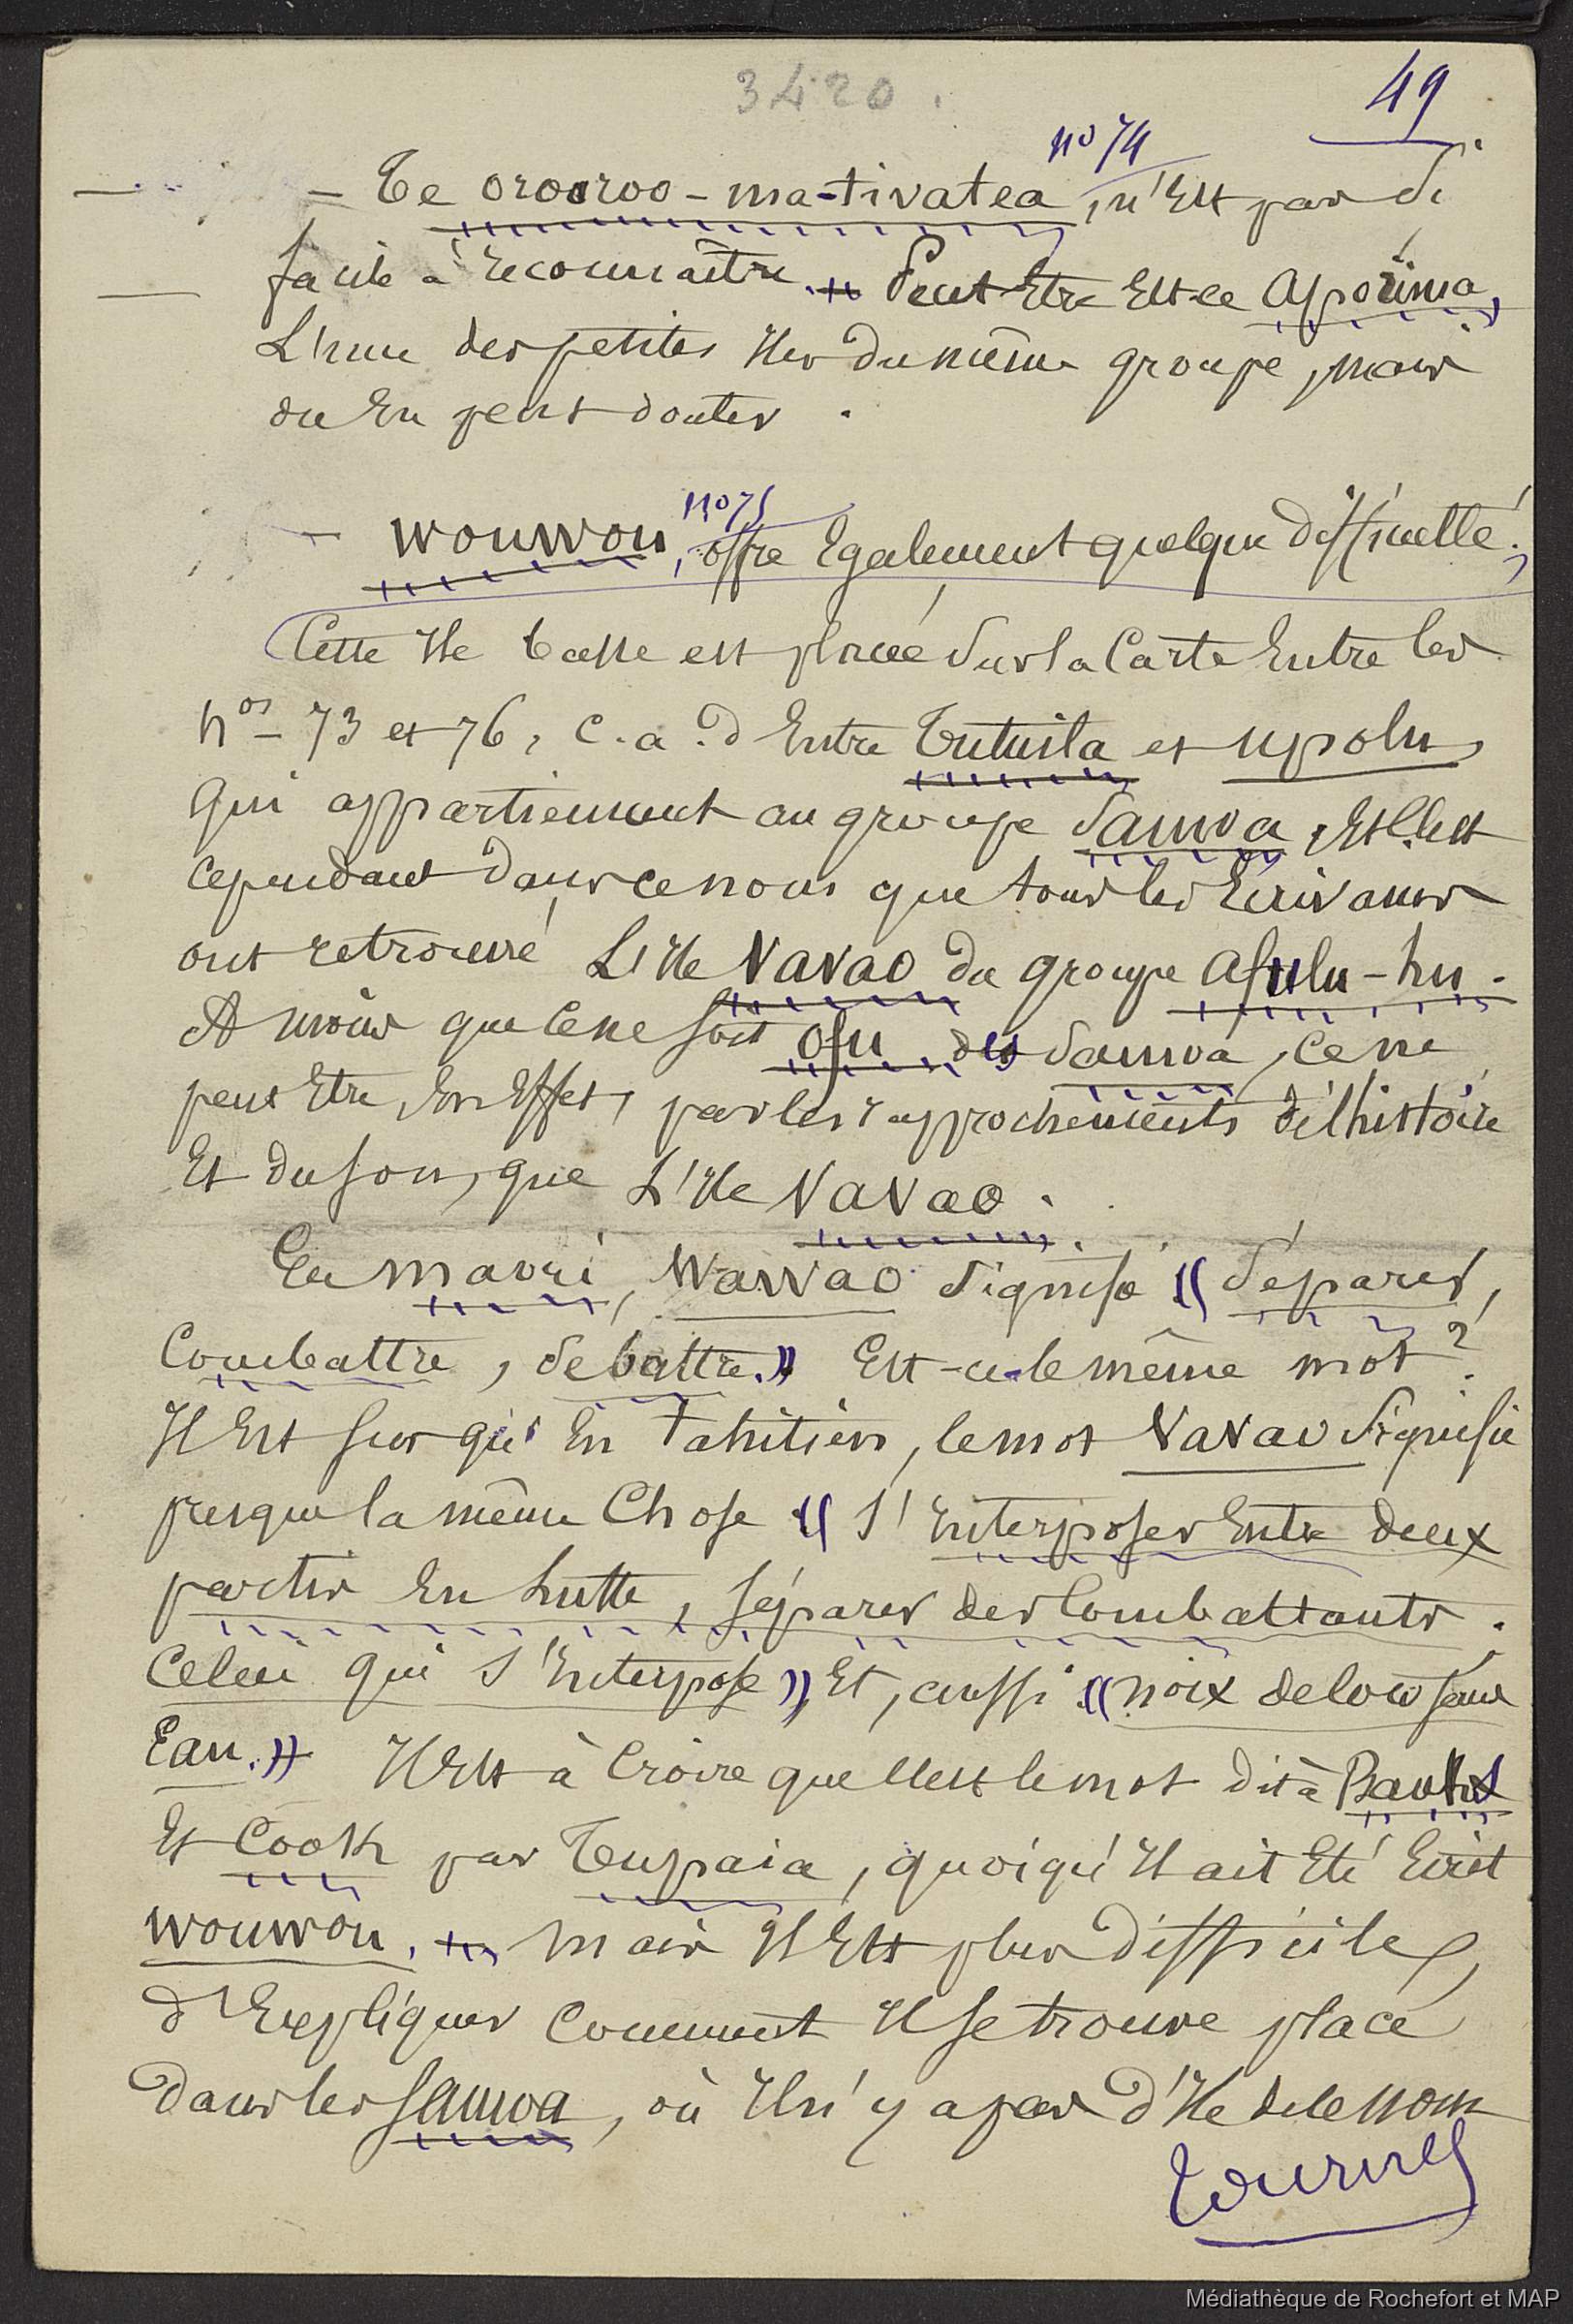 3420.
49
no 74
— Te orooroo-ma-tivatea, n'Est pas si
facile à reconnaître. Peut Etre Est-ce Aporima,
L'une des petites Iles du même groupe, mais
on En peut douter.
no 75
— Wouwou, offre Egalement quelque difficulté;
Cette Ile basse est placée sur la Carte Entre les
nos 73 et 76, c.a.d Entre Tutuila et Upolu,
qui appartiennent au groupe Samoa. Et C'est
cependant dans ce nom que tous les Ecrivains
ont retrouvé L'Ile Vavao du groupe Afulu-hu.
A moins que ce ne soit Ofu des Samoa, ce ne
peut Etre, En Effet, par les rapprochements de l'histoire
Et du son, que L'Ile Vavao.
En Maori, Wawao signifie « séparer,
Combattre, debattre.» Est-ce le même mot?
Il Est sur qu'En Tahitien, le mot Vavao signifie
presque la même Chose « s'Enterposer Entre deux
partis En lutte, séparer des Combattants.
Celui qui s'Enterpose», Et, aussi «noix de coco sans
Eau.» Il Est à Croire que c'est le mot dit à Banks
Et Cook par Tupaia, quoiqu'Il ait Eté Ecrit
Wouwou. Mais Il Est plus difficile
d'Expliquer Comment Il se trouve placé
dans les Samoa, où Il n'y a pas d'Ile de ce nom
Tournes
Médiathèque de Rochefort et MAP